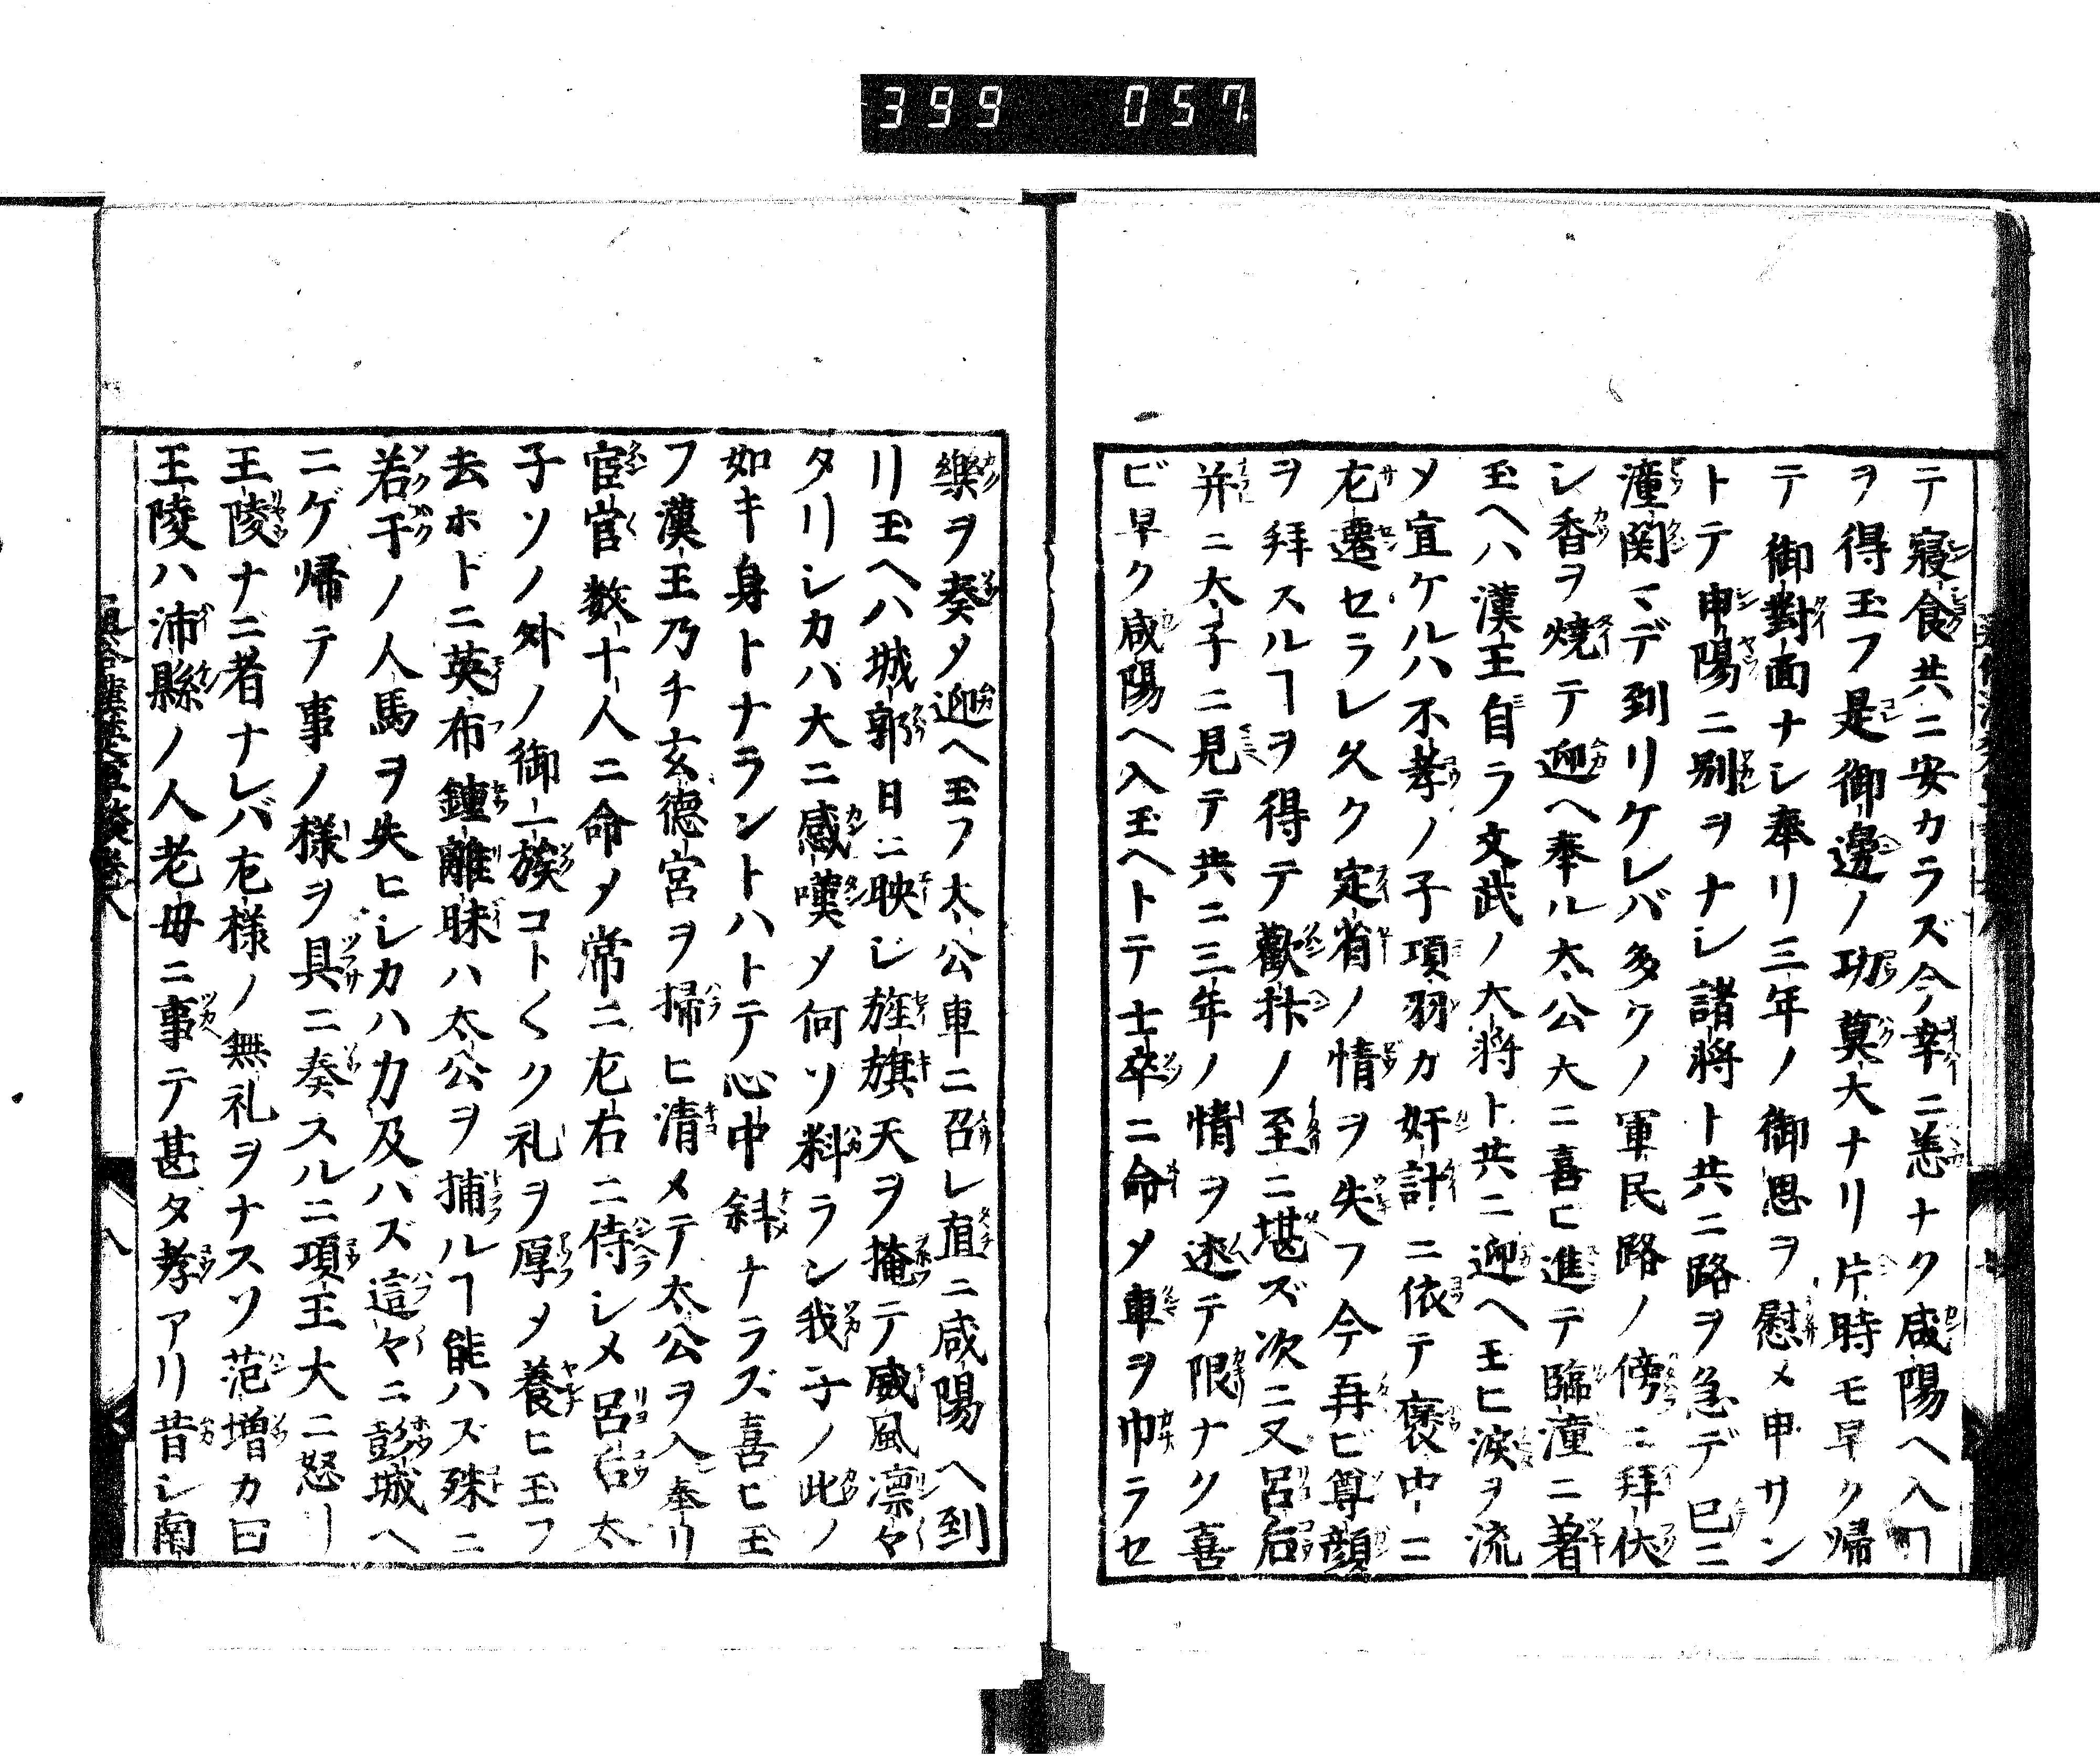 399 057
テ寝食共ニ安カラズ今幸ニ恙ナク咸陽ヘ入ヿ
ヲ得玉フ是御邊ノ功莫大ナリ片時モ早ク帰
テ御對面ナシ奉リ三年ノ御思ヲ慰メ申サン
トテ申陽ニ別ヲナシ諸將ト共ニ路ヲ急デ已ニ
潼関マデ到リケレバ多クノ軍民路ノ傍ニ拜伏
シ香ヲ燒テ迎ヘ奉ル太公大ニ喜ヒ進テ臨潼ニ著
玉ヘハ漢王自ラ文武ノ大將ト共ニ迎ヘ玉ヒ涙ヲ流
メ宣ケルハ不孝ノ子項羽カ奸計ニ依テ褒中ニ
左遷セラレ久ク定省ノ情ヲ失フ今再ビ尊顔
ヲ拜スルヿヲ得テ歡抃ノ至ニ堪ズ次ニ又呂后
并ニ太子ニ見テ共ニ三年ノ情ヲ述テ限ナク喜
ビ早ク咸陽ヘ入玉ヘトテ士卒ニ命メ車ヲ巾ラセ
樂ヲ奏メ迎ヘ玉フ太公車ニ召レ直ニ咸陽ヘ到
リ玉ヘハ城郭日ニ映シ旌旗天ヲ掩テ威風凛々
タリシカバ大ニ感嘆メ何ソ料ラン我子ノ此ノ
如キ身トナラントハトテ心中斜ナラズ喜ヒ玉
フ漢王乃チ玄德宮ヲ掃ヒ清メテ太公ヲ入奉リ
宦官数十人ニ命メ常ニ左右ニ侍シメ呂后太
子ソノ外ノ御一族コト〱ク礼ヲ厚メ養ヒ玉フ
去ホドニ英布鍾離昧ハ太公ヲ捕ルヿ能ハズ殊ニ
若干ノ人馬ヲ失ヒシカハ力及ハズ這々ニ彭城ヘ
ニゲ帰テ事ノ様ヲ具ニ奏スルニ項王大ニ怒リ
王陵ナニ者ナレバ左様ノ無礼ヲナスソ范増カ曰
王陵ハ沛縣ノ人老母ニ事テ甚ダ孝アリ昔シ南
八